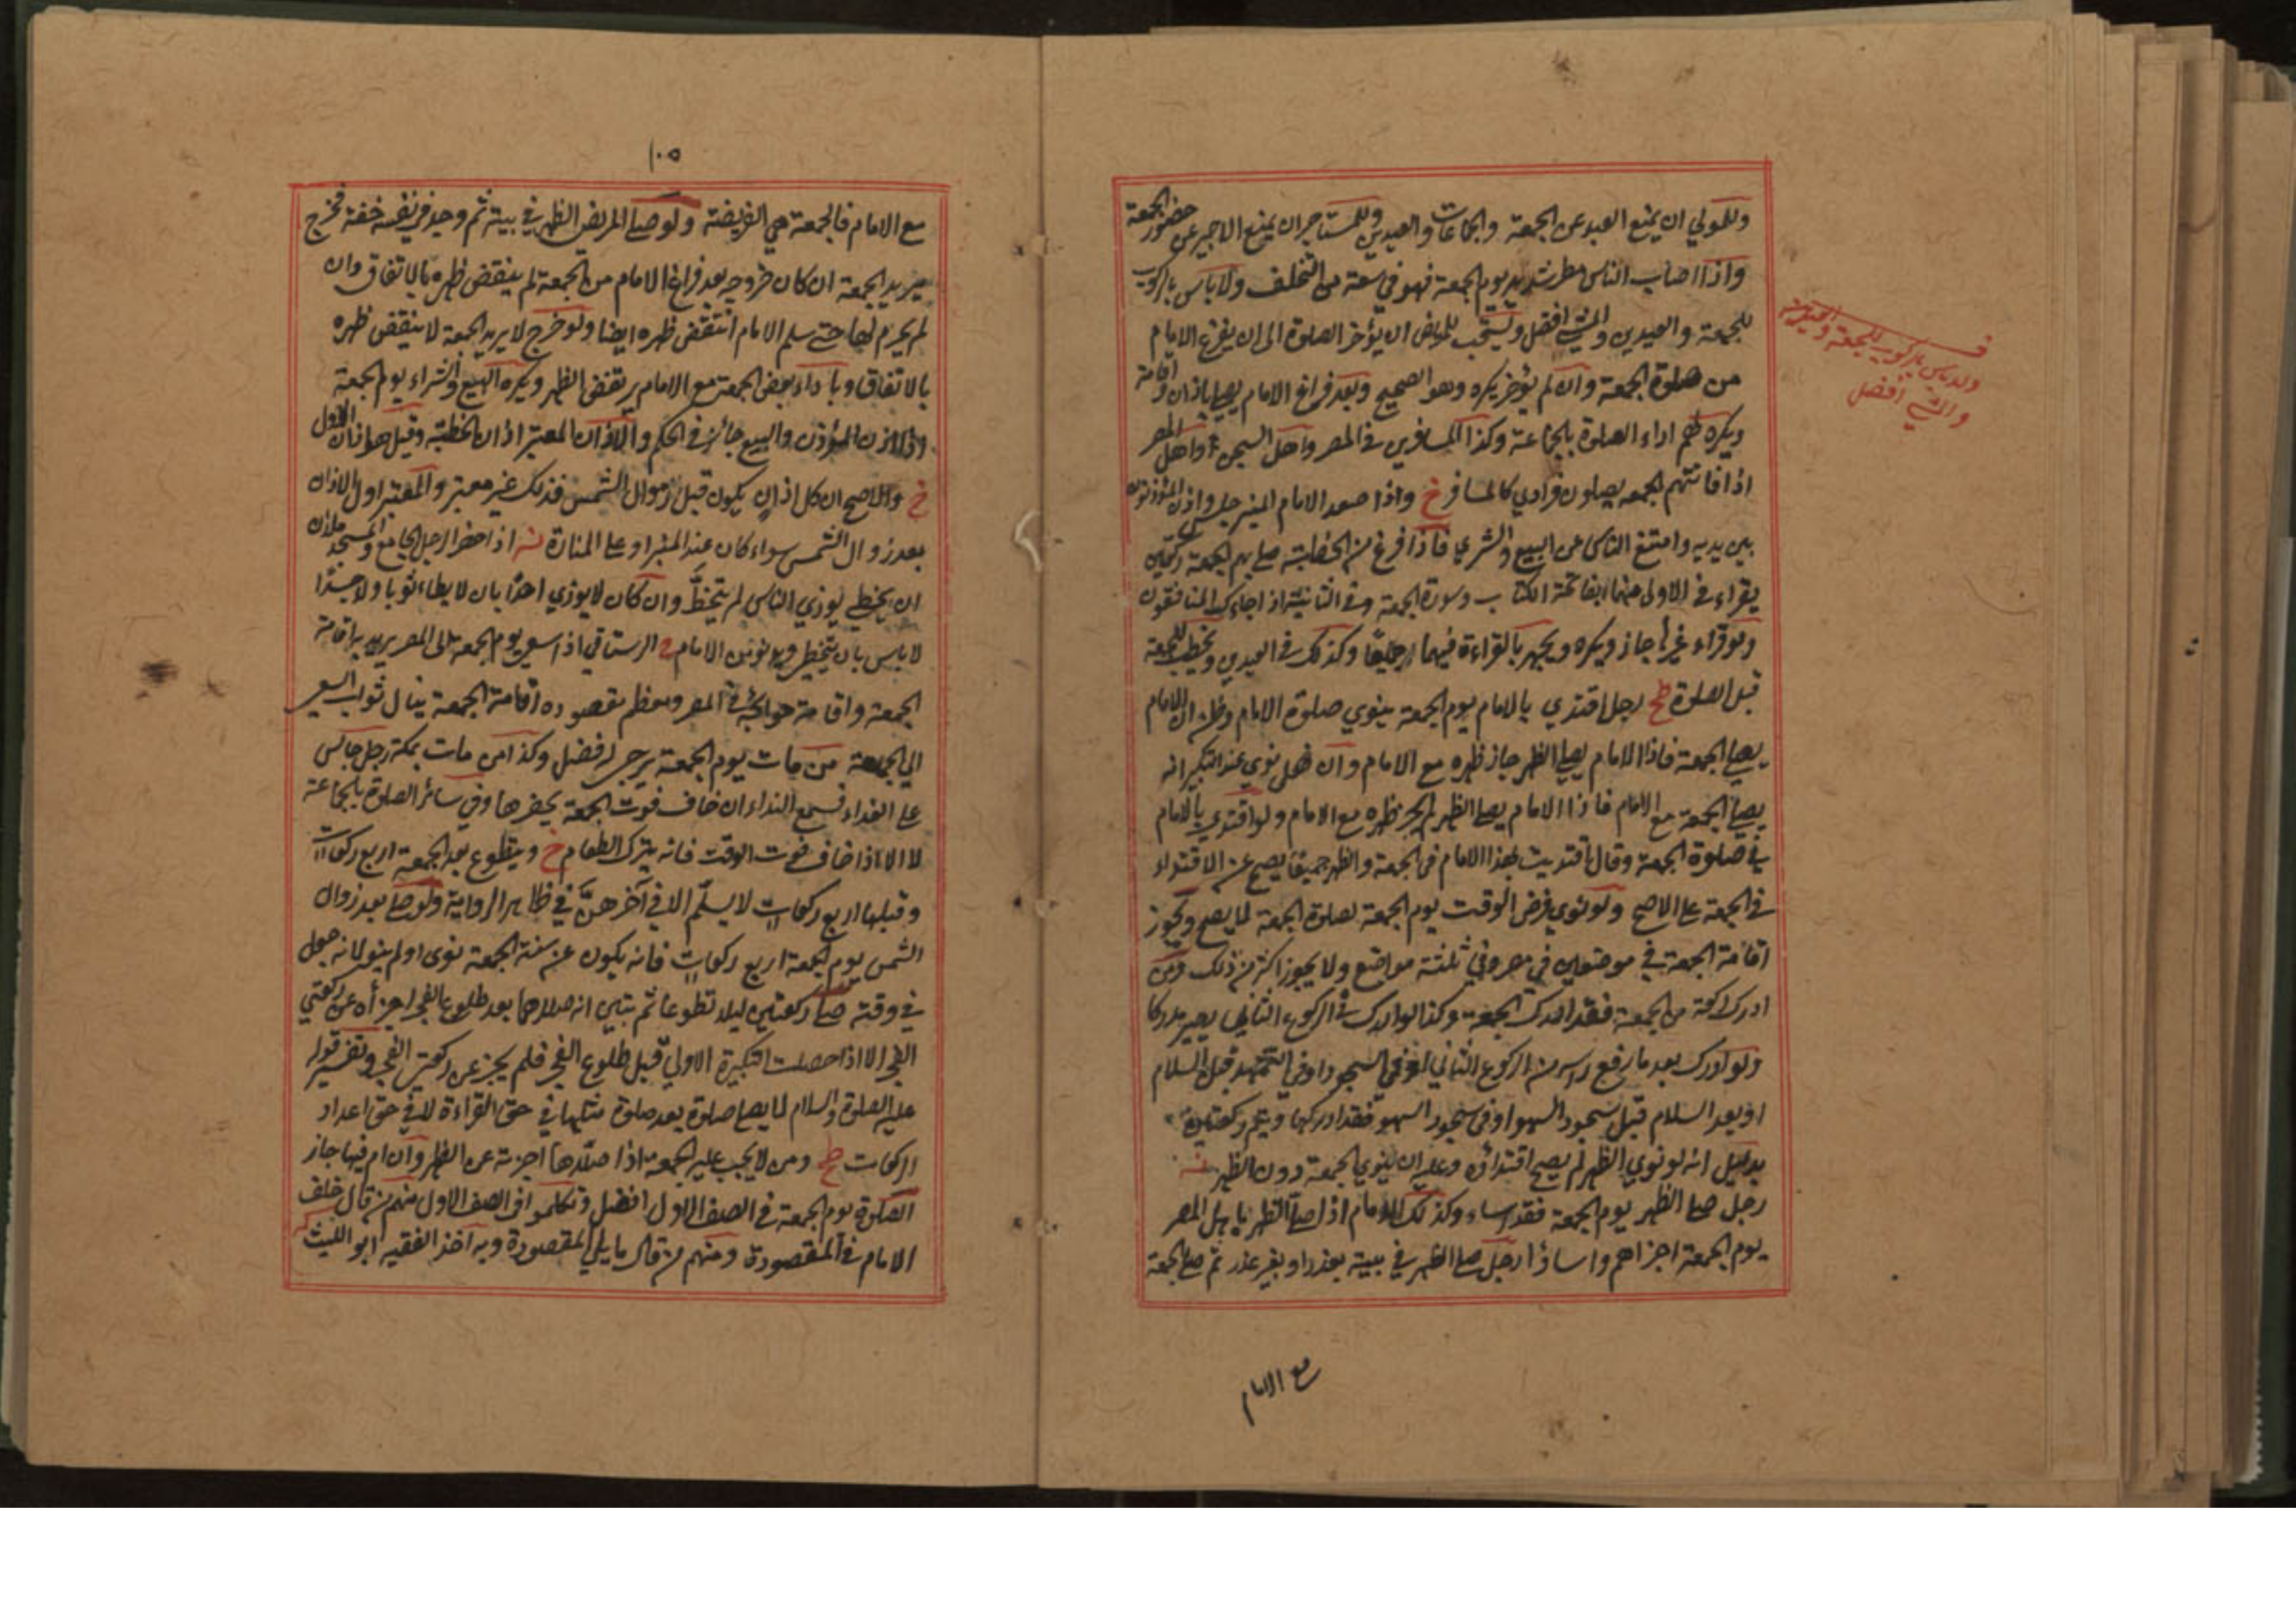 وللمولي ان يمنع العبد عن الجمعة والجماعات والعيدين وللمستاجر ان يمنع الاجير عن حضور الجمعة
واذا اصاب الناس مطر شديد يوم الجمعة فهو في سعة من التخلف ولا باس بالركوب
للجمعة والعيدين والمشي افضل ويستحب للمريض ان يؤخر الصلوة الى ان يفرغ الامام
من صلوة الجمعة وان لم يؤخر يكره وهو الصحيح وبعد فراغ الامام يصلي باذان واقامة
ويكره لهم اداء الصلوة بالجماعة وكذا المسافرين في المصر واهل السجن واهل المصر
اذا فاتتهم الجمعه يصلون فرادي كالمسافر خ واذا صعد الامام المنبر جلس واذن المؤذنون
بين يديه وامتنع الناس عن البيع والشري فاذا فرغ من الخطبة صلي بهم الجمعة ركعتين
يقراء في الاولى منهما بفاتحة الكتاب وسورة الجمعة وفي الثانية اذا جاءك المنافقون
ولو قراء غيرها جاز ويكره ويجهر بالقراءة فيهما جميعًا وكذلك في العيدين ويخطب للجمعة
قبل الصلوة طح رجل اقتدي بالامام يوم الجمعة ينوي صلوة الامام وظن ان الامام
يصلي الجمعة فاذا الامام يصلي الظهر جاز ظهره مع الامام وان نوي عند التكبير انه
يصلي الجمعة مع الامام فاذا الامام يصلي الظهر لم يجز ظهره مع الامام ولو اقتدي بالامام
في صلوة الجمعة وقال اقتديت بهذا الامام في الجمعة والظهر جميعًا يصح عنه الاقتداء
في الجمعة على الاصح ولو نوي فرض الوقت يوم الجمعة لصلوة الجمعة لا يصح ويجوز
اقامة الجمعة في موضعين في مصر وفي ثلثة مواضع ولا يجوز اكثر من ذلك ومن
ادرك ركعة من الجمعة فقد ادرك الجمعة وكذا لو ادرك في الركوع الثاني يصير مدركا
ولو ادرك بعد ما رفع راسه من الركوع الثاني او في السجود او في التشهد قبل السلام
او بعد السلام قبل سجود السهو او في سجود السهو فقد ادركها ويتم ركعتين
بدليل انه لو نوي الظهر لم يصح اقتداؤه وعليه ان ينوي الجمعة دون الظهر
رجل صلى الظهر يوم الجمعة فقد اساء وكذلك الامام اذا صلى الظهر باهل المصر
يوم الجمعة اجزاهم واساؤا رجل صلى الظهر في بيته بعذر او بغير عذر ثم صلى الجمعة
مع الامام
ولا باس بالركوب للجمعة والعيدين
والمشي افضل
١٠٥
مع الامام فالجمعة هي الفريضة ولو صلى المريض الظهر في بيته ثم وجد في نفسه خفة فخرج
يريد الجمعة ان كان خروجه بعد فراغ الامام من الجمعة لم ينقض ظهره بالاتفاق وان
لم يحرم لها حتى سلم الامام انتقض ظهره ايضا ولو خرج لا يريد الجمعة لا ينقض ظهره
بالاتفاق وباداء بعض الجمعة مع الامام يرتفض الظهر ويكره البيع والشراء يوم الجمعة
اذا اذن المؤذن والبيع جائز في الحكم والاذان المعتبر اذان الخطبة وقيل هو اذان الاول
خ والاصح ان كل اذان يكون قبل زوال الشمس فذلك غير معتبر والمعتبر اول الاذان
بعد زوال الشمس سواء كان عند المنبر او على المنارة اذا حضر الرجل الجامع والمسجد ملآن
ان يخطي يوذي الناس لم يتخطّ وان كان لا يوذي احدًا بان لا يطاء ثوبا ولا جسدًا
لا باس بان يتخطي ويدنو من الامام الرستاقي اذا سعي يوم الجمعة الى المصر يريد به اقامة
الجمعة واقامة حوائجه في المصر ومعظم مقصوده اقامة الجمعة ينال ثواب السعي
الي الجمعة من مات يوم الجمعة يرجى له فضل وكذا من مات بمكة رجل جالس
على الغداء فسمع النداء ان خاف فوت الجمعة يحضرها وفي سائر الصلوة بالجماعة
لا الا اذا خاف فوت الوقت فانه يترك الطعام خ ويتطوع بعد الجمعة اربع ركعات
وقبلها اربع ركعات لا يسلّم الا في آخرهنّ في ظاهر الرواية ولو صلى بعد زوال
الشمس يوم الجمعة اربع ركعات فانه يكون عن سنة الجمعة نوى او لم ينو لانه حصل
في وقته صلى ركعتين ليلا تطوعا ثم تبين انه صلاهما بعد طلوع الفجر اجزأه عن ركعتي
الفجر الا اذا حصلت التكبيرة الاولي قبل طلوع الفجر فلم يجز عن ركعتي الفجر وتفسير قوله
عليه الصلوة والسلام لا يصلي صلوة بعد صلوة مثلها في حق القراءة لا في حق اعداد
الركعات طح ومن لا يجب عليه الجمعة اذا صلّاها اجزته عن الظهر وان ام فيها جاز
الصلوة يوم الجمعة في الصف الاول افضل وتكلموا في الصف الاول منهم من قال خلف
الامام في المقصورة ومنهم من قال ما يلي المقصورة وبه اخذ الفقيه ابو الليث